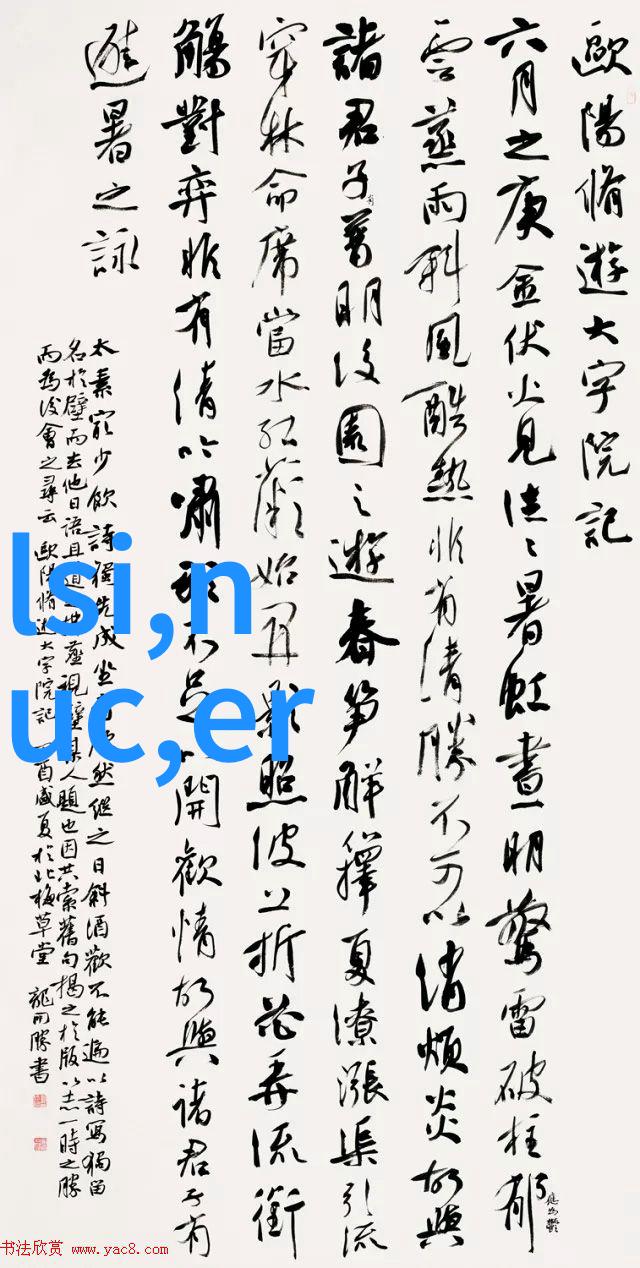 歐陽脩遊大字院記
六月之庚金伏火見往〻暑虹晝明驚雷破柱郁
應為鬱
雲蒸雨斜風酷熱非有清勝不可以消煩炎故與
諸君子普明後園之遊春筍解籜夏潦漲渠引流
有
穿林命席當水紅薇始開影照波上折花弄流銜
觴對弈非有清吟嘯歌不足以開歡情故與諸君子有
避暑之詠
太素最少飲詩獨先成坐者欣然繼之日斜酒歡不能遍以詩寫獨留
名於壁而去他日語且道之拂塵視壁某人題也因共索舊句揭之於版以志一時之勝
而為後會之尋云 歐陽脩遊大字院記 丁酉盛夏於北梅草堂 龍開勝書
lsi,n
uc,er
书法欣赏 www.yac8.com